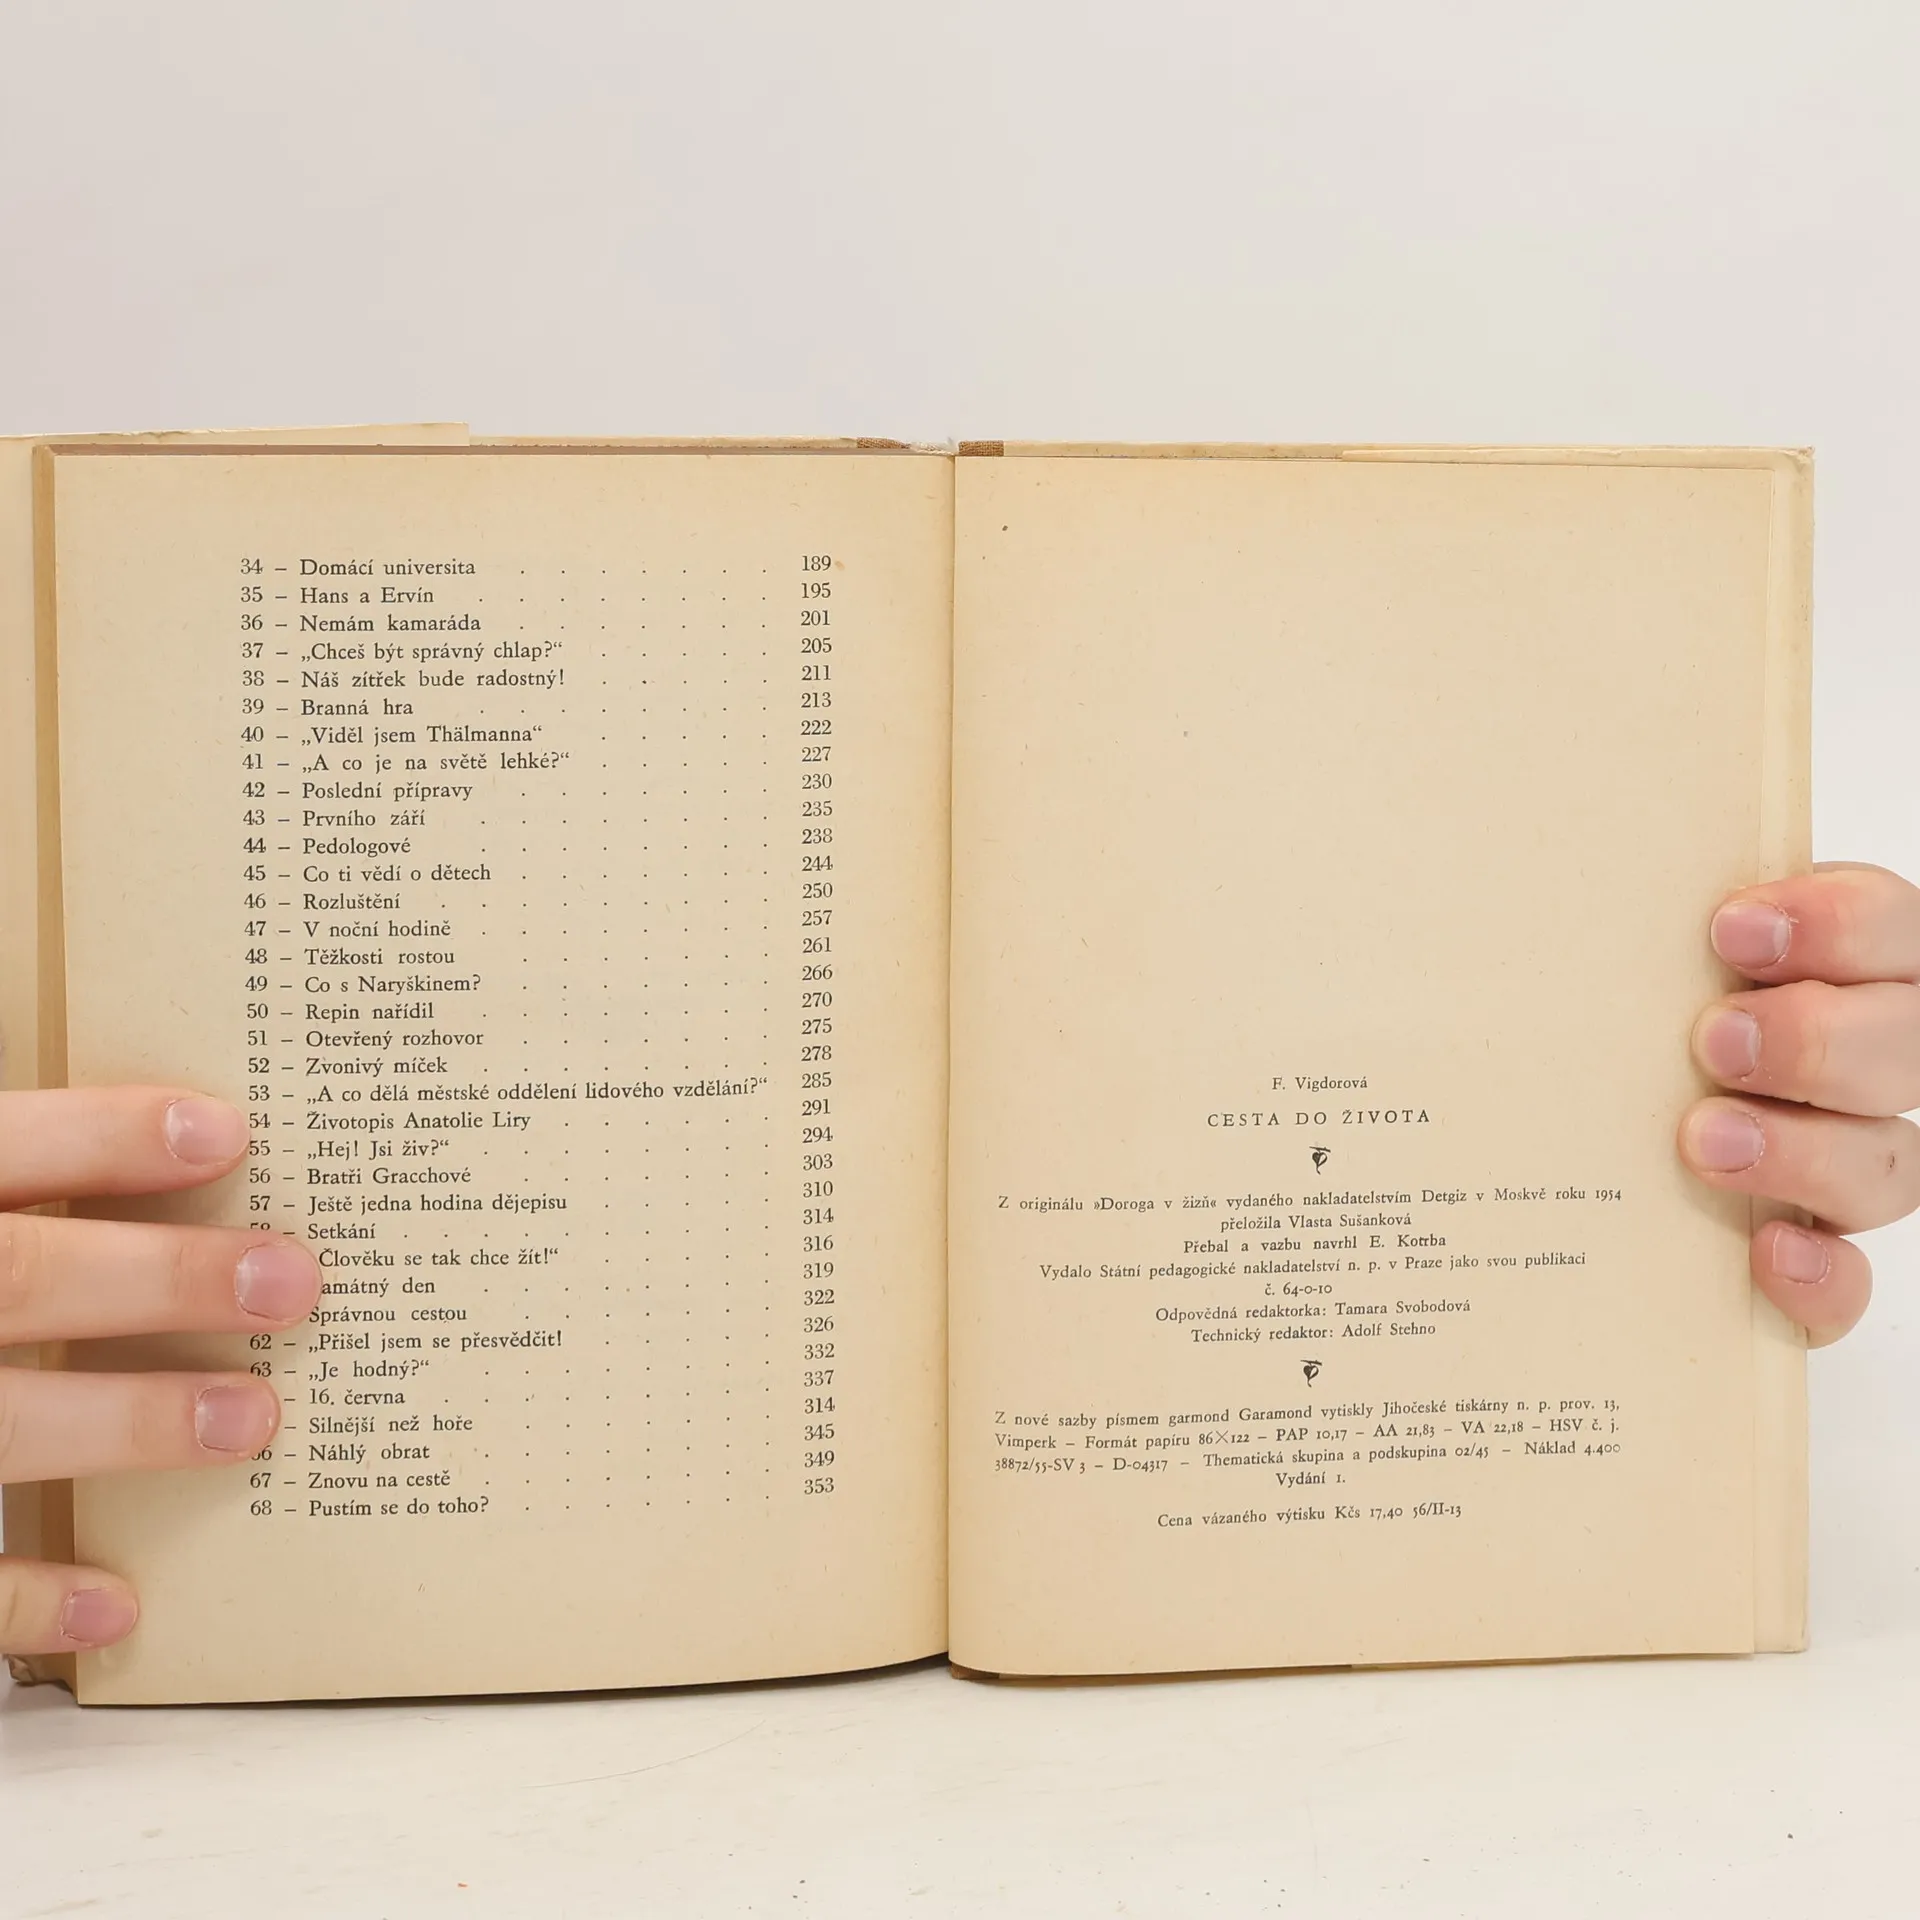 34 – Domácí universita . . . . . . . 189
35 – Hans a Ervín . . . . . . . . 195
36 – Nemám kamaráda . . . . . . . 201
37 – „Chceš být správný chlap?“ . . . . . 205
38 – Náš zítřek bude radostný! . . . . . 211
39 – Branná hra . . . . . . . . 213
40 – „Viděl jsem Thälmanna“ . . . . . 222
41 – „A co je na světě lehké?“ . . . . . 227
42 – Poslední přípravy . . . . . . . 230
43 – Prvního září . . . . . . . . 235
44 – Pedologové . . . . . . . . 238
45 – Co ti vědí o dětech . . . . . . . 244
46 – Rozluštění . . . . . . . . . 250
47 – V noční hodině . . . . . . . . 257
48 – Těžkosti rostou . . . . . . . 261
49 – Co s Naryškinem? . . . . . . . 266
50 – Repin nařídil . . . . . . . . 270
51 – Otevřený rozhovor . . . . . . . 275
52 – Zvonivý míček . . . . . . . . 278
53 – „A co dělá městské oddělení lidového vzdělání?“ 285
54 – Životopis Anatolie Liry . . . . . . 291
55 – „Hej! Jsi živ?“ . . . . . . . . 294
56 – Bratři Gracchové . . . . . . . 303
57 – Ještě jedna hodina dějepisu . . . . . 310
58 – Setkání . . . . . . . . . . 314
Člověku se tak chce žít!“ . . . . . 316
amátný den . . . . . . . . 319
Správnou cestou . . . . . . . 322
62 – „Přišel jsem se přesvědčit! . . . . . 326
63 – „Je hodný?“ . . . . . . . . 332
– 16. června . . . . . . . . . 337
– Silnější než hoře . . . . . . . 314
66 – Náhlý obrat . . . . . . . . 345
67 – Znovu na cestě . . . . . . . . 349
68 – Pustím se do toho? . . . . . . . 353
F. Vigdorová
CESTA DO ŽIVOTA
Z originálu »Doroga v žizň« vydaného nakladatelstvím Detgiz v Moskvě roku 1954
přeložila Vlasta Sušanková
Přebal a vazbu navrhl E. Kotrba
Vydalo Státní pedagogické nakladatelství n. p. v Praze jako svou publikaci
č. 64-0-10
Odpovědná redaktorka: Tamara Svobodová
Technický redaktor: Adolf Stehno
Z nové sazby písmem garmond Garamond vytiskly Jihočeské tiskárny n. p. prov. 13,
Vimperk – Formát papíru 86×122 – PAP 10,17 – AA 21,83 – VA 22,18 – HSV č. j.
38872/55-SV 3 – D-04317 – Thematická skupina a podskupina 02/45 – Náklad 4.400
Vydání 1.
Cena vázaného výtisku Kčs 17,40 56/II-13